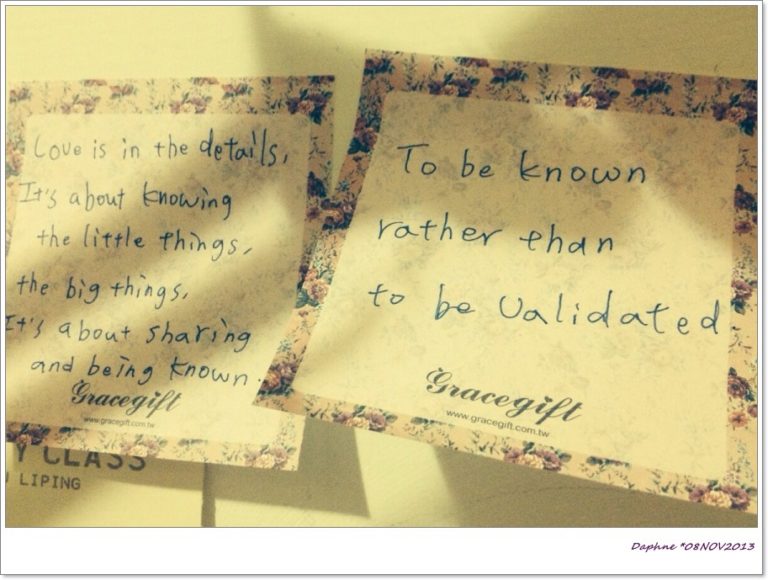 Love is in the details,
It's about knowing
the little things,
the big things,
It's about sharing
and being known.
Gracegift
www.gracegift.com.tw
Y CLASS
LIPING
To be known
rather than
to be validated.
Gracegift
www.gracegift.com.tw
Daphne *08NOV2013